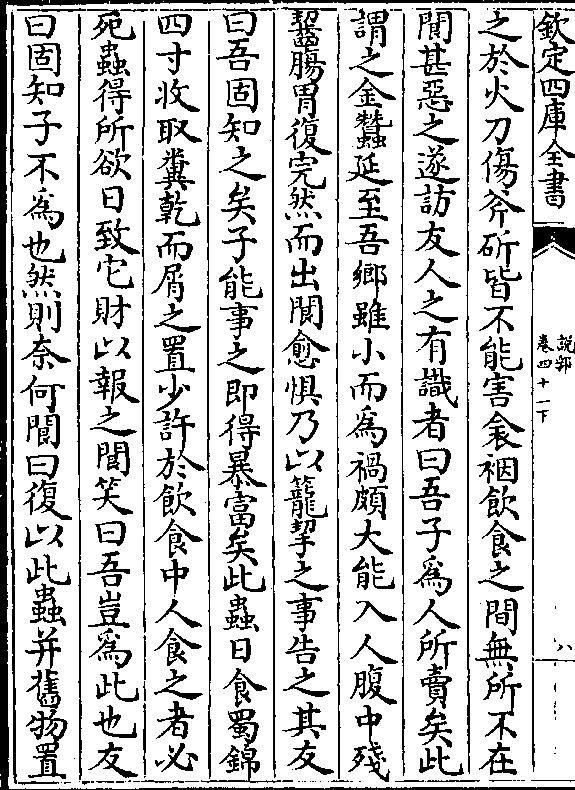 欽定四庫全書
說郛
卷四十一下
八
之於火刀傷斧斫皆不能害衾裀飲食之間無所不在
閩甚惡之遂訪友人之有識者曰吾子為人所賣矣此
謂之金蠶延至吾鄉雖小而為禍頗大能入人腹中殘
齧腸胃復完然而出閩愈懼乃以籠挈之事告之其友
曰吾固知之矣子能事之即得暴富矣此蟲日食蜀錦
四寸收取糞乾而屑之置少許於飲食中人食之者必
死蟲得所欲日致它財以報之閩笑曰吾豈為此也友
曰固知子不為也然則奈何閩曰復以此蟲并舊物置